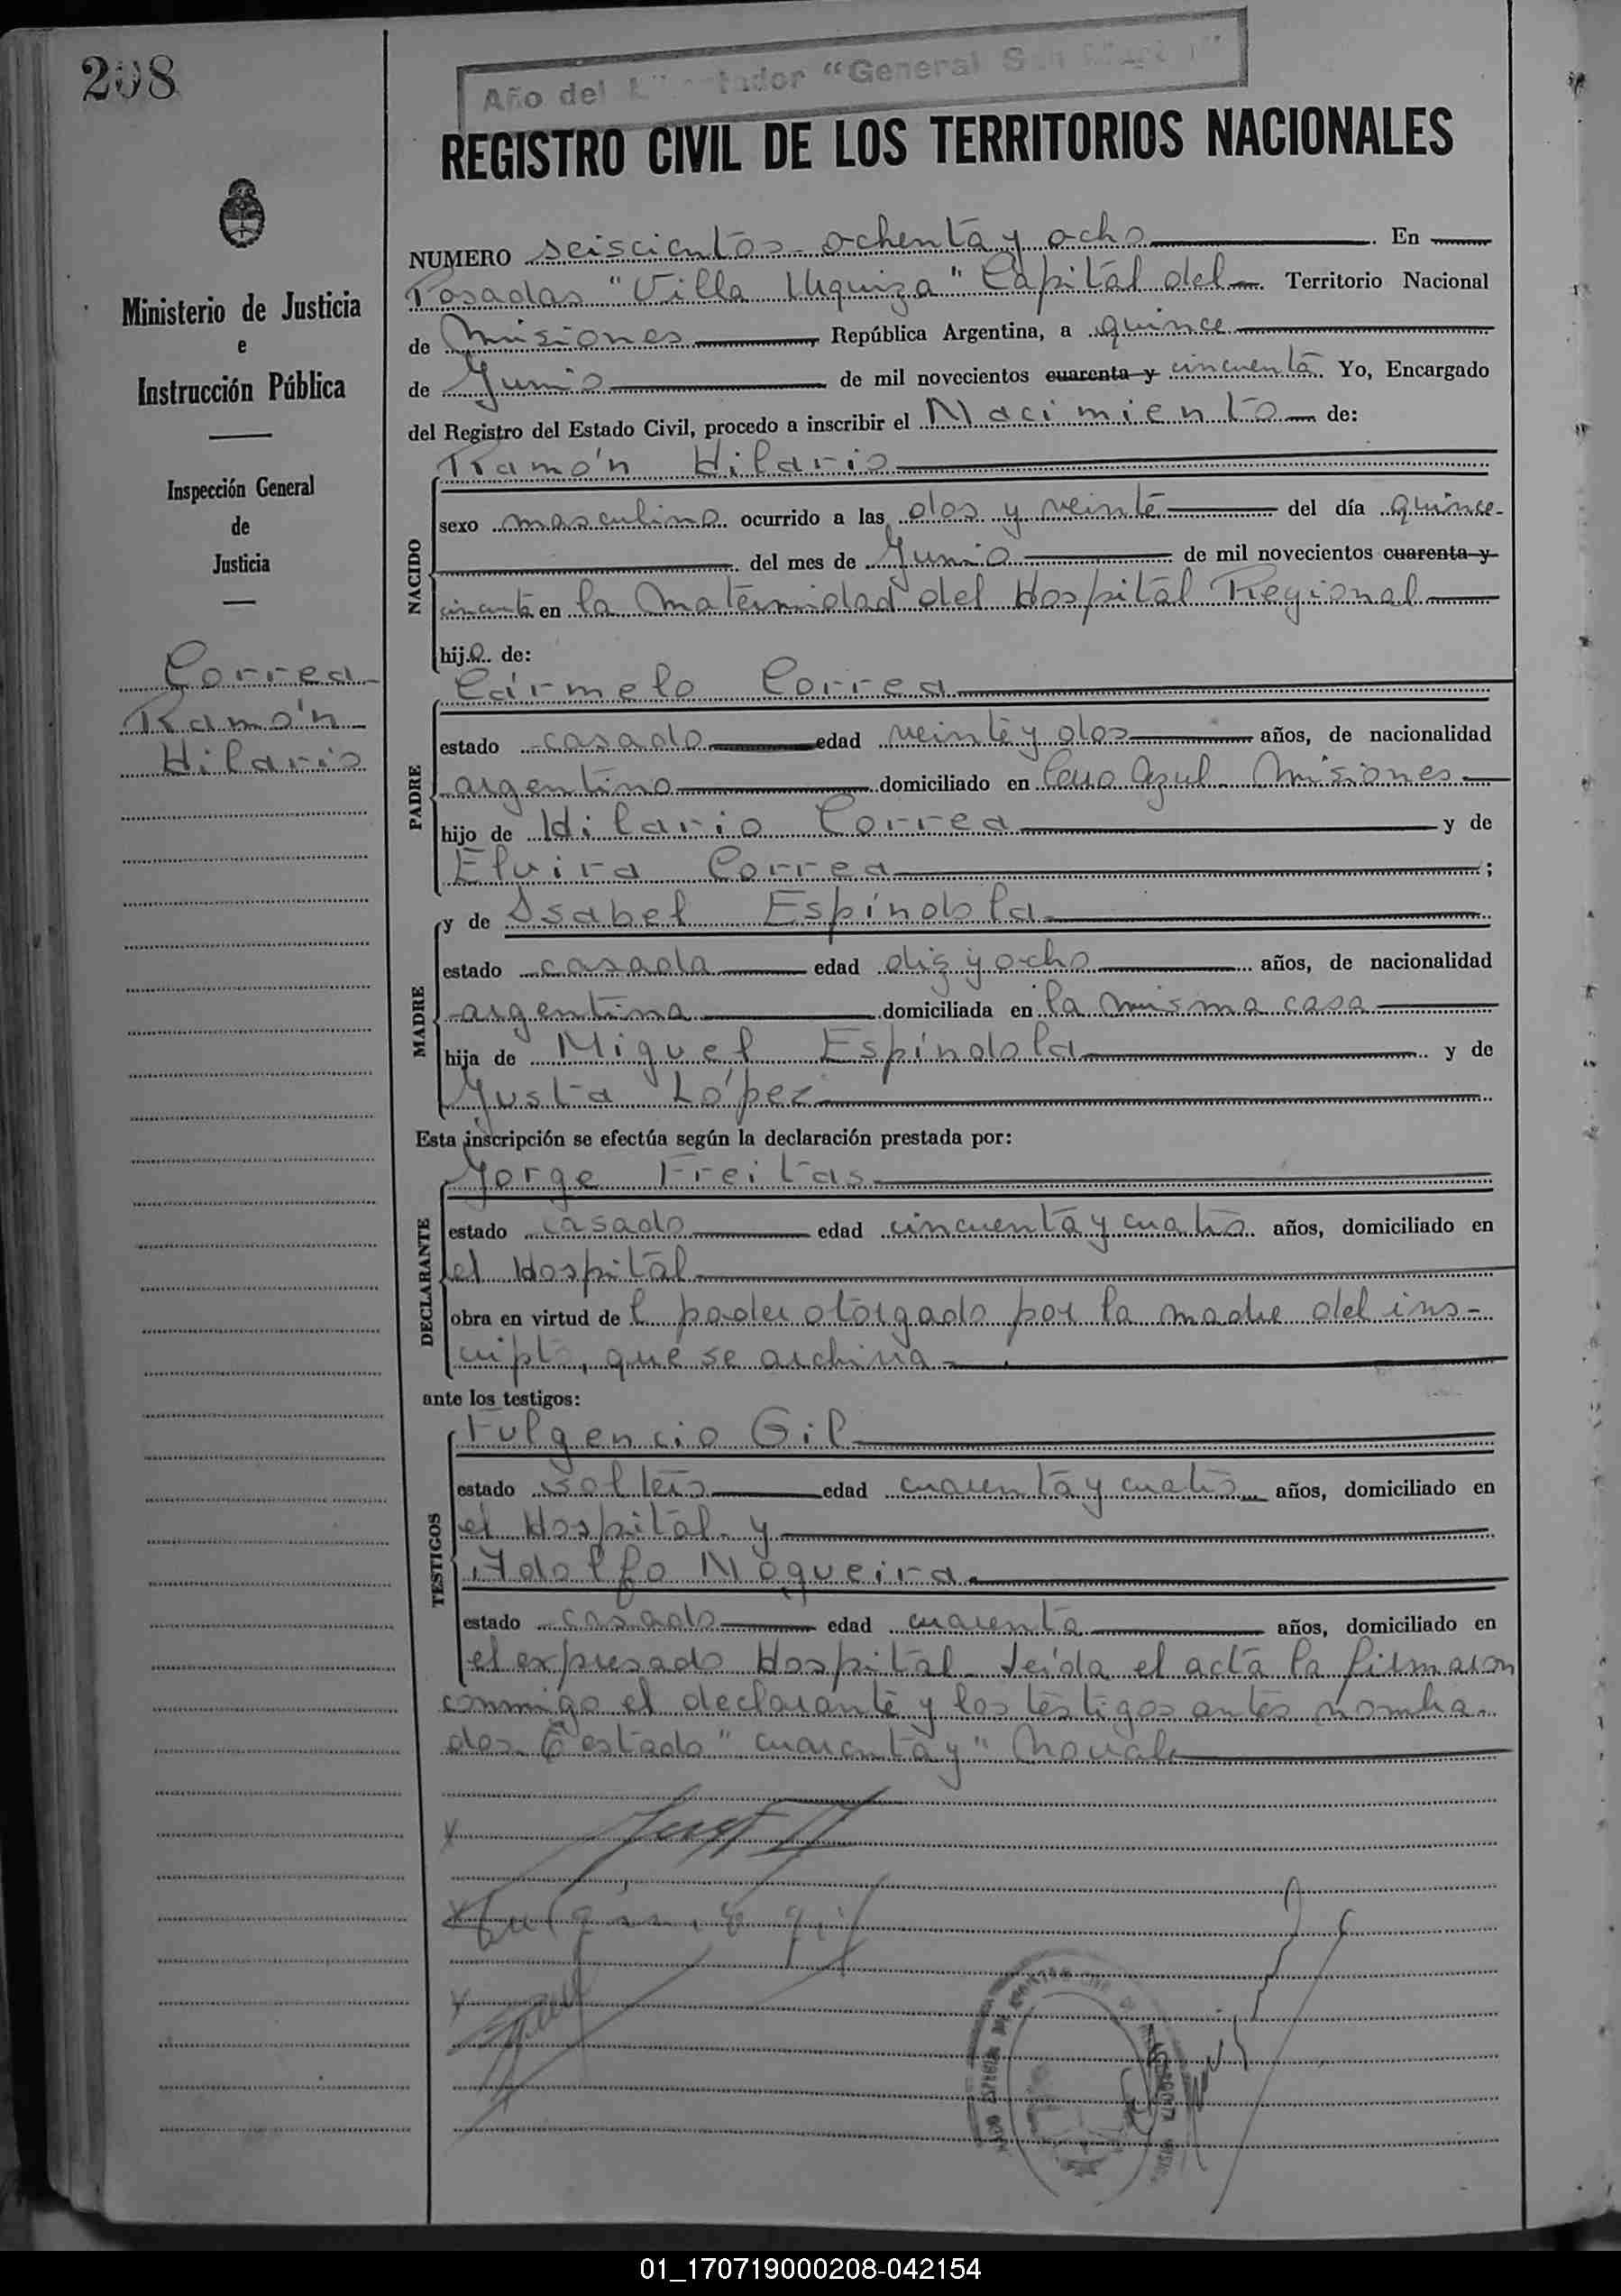 208
Año del Libertador "General San Martín"
REGISTRO CIVIL DE LOS TERRITORIOS NACIONALES
Ministerio de Justicia
e
Instrucción Pública
Inspección General
de
Justicia
Correa
Ramón
Hilario
NUMERO seiscientos ochenta y ocho. En
Posadas "Villa Urquiza" Capital del Territorio Nacional
de Misiones República Argentina, a quince
de Junio de mil novecientos cuarenta y cincuenta Yo, Encargado
del Registro del Estado Civil, procedo a inscribir el Nacimiento de:
NACIDO
Ramón Hilario
sexo masculino ocurrido a las dos y veinte del día quince
del mes de Junio de mil novecientos cuarenta y
cincuenta en la Maternidad del Hospital Regional
hijo de:
PADRE
Cármelo Correa
estado casado edad veinte y dos años, de nacionalidad
argentino domiciliado en Cerro Azul Misiones
hijo de Hilario Correa y de
Elvira Correa;
MADRE
y de Isabel Espíndola
estado casada edad diez y ocho años, de nacionalidad
argentina domiciliada en la misma casa
hija de Miguel Espíndola y de
Justa López
Esta inscripción se efectúa según la declaración prestada por:
DECLARANTE
Jorge Freitas
estado casado edad cincuenta y cuatro años, domiciliado en
el Hospital
obra en virtud de l poder otorgado por la madre del ins-
cripto, que se archiva.
ante los testigos:
TESTIGOS
Fulgencio Gil
estado soltero edad cuarenta y cuatro años, domiciliado en
el Hospital y
Adolfo Nogueira
estado casado edad cuarenta años, domiciliado en
el expresado Hospital Leída el acta la firmaron
conmigo el declarante y los testigos antes nombra-
dos. testado "cuarenta y" No vale
Fulgencio Gil
01_170719000208-042154